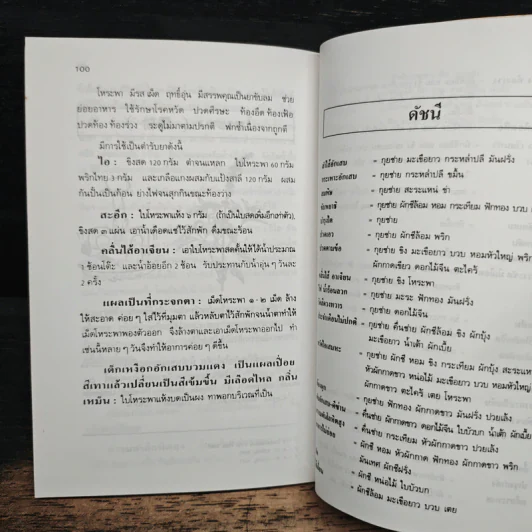 100
โหระพา มีรส เผ็ด ฤทธิ์อุ่น มีสรรพคุณเป็นยาขับลม ช่วย
ย่อยอาหาร ใช้รักษาโรคหวัด ปวดศีรษะ ท้องอืด ท้องเฟ้อ
ปวดท้อง ท้องร่วง ระดูไม่มาตามปรกติ ฟกช้ำเนื่องจากถูกตี
มีการใช้เป็นตำรับยาดังนี้
ไอ : ขิงสด 120 กรัม ตำจนแหลก ใบโหระพา 60 กรัม
พริกไทย 3 กรัม และเกลือแกงผสมกับแป้งสาลี 120 กรัม ผสม
กันปั้นเป็นก้อน ย่างไฟจนสุกกินขณะท้องว่าง
สะอึก : ใบโหระพาแห้ง ๖ กรัม (ถ้าเป็นใบสดเพิ่มอีกเท่าตัว).
ขิงสด ๓ แผ่น เอาน้ำเดือดแช่ไว้สักพัก ดื่มขณะร้อน
คลื่นไส้อาเจียน : เอาใบโหระพาสดคั้นให้ได้น้ำประมาณ
1 ช้อนโต๊ะ และน้ำอ้อยอีก 2 ช้อน รับประทานกับน้ำอุ่น ๆ วันละ
2 ครั้ง
แผลเป็นที่กระจกตา : เมล็ดโหระพา ๑ - ๒ เม็ด ล้าง
ให้สะอาด ค่อย ๆ ใส่ไว้ที่มุมตา แล้วหลับตาไว้สักพักจนน้ำตาทำให้
เม็ดโหระพาพองตัวออก จึงล้างตาและเอาเม็ดโหระพาออกไป ทำ
เช่นนี้หลาย ๆ วันจึงทำให้อาการค่อย ๆ ดีขึ้น
เด็กเหงือกอักเสบบวมแดง เป็นแผลเปื่อย
สีเทาแล้วเปลี่ยนเป็นสีเข้มขึ้น มีเลือดไหล กลิ่น
เหม็น : ใบโหระพาแห้งบดเป็นผง ทาพอกบริเวณที่เป็น
ดัชนี
= กุยช่าย มะเขือยาว กระหล่ำปลี มันฝรั่ง
= กุยช่าย กระหล่ำปลี ขมิ้น
= กุยช่าย สะระแหน่ ข่า
= กุยช่าย ผักชีล้อม หอม กระเทียม ฟักทอง บวบ
= กุยช่าย
= กุยช่าย ผักชีล้อม พริก
= กุยช่าย ขิง มะเขือยาว บวบ หอมหัวใหญ่ พริก
ผักกาดเขียว ดอกไม้จีน ตะไคร้
= กุยช่าย ขิง โหระพา
= กุยช่าย มะระ ฟักทอง มันฝรั่ง
= กุยช่าย ดอกไม้จีน
= กุยช่าย คื่นช่าย ผักชีล้อม ขิง ผักบุ้ง
มะเขือยาว น้ำเต้า ผักเบี้ย
= กุยช่าย ผักชี หอม ขิง กระเทียม ผักบุ้ง สะระแหน่
หัวผักกาดขาว หน่อไม้ มะเขือยาว บวบ หอมหัวใหญ่
ผักกาดขาว ตะไคร้ เตย โหระพา
= กุยช่าย ฟักทอง ผักกาดขาว มันฝรั่ง ปวยเล้ง
= คื่นช่าย ผักกาดขาว ดอกไม้จีน ใบบัวบก น้ำเต้า ผักเบี้ย
= คื่นช่าย กระเทียม หัวผักกาดขาว ปวยเล้ง
= ผักชี หอม หัวผักกาด ฟักทอง ผักกาดขาว พริก
มันเทศ ผักชีฝรั่ง
= ผักชี หน่อไม้ ใบบัวบก
= ผักชีล้อม มะเขือยาว บวบ เตย